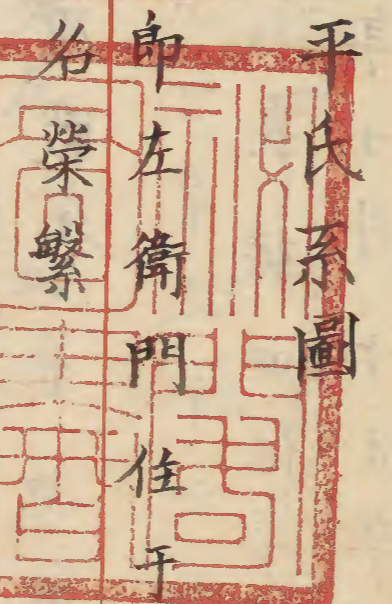 平氏系圖
郎左衛門住于
名榮繁